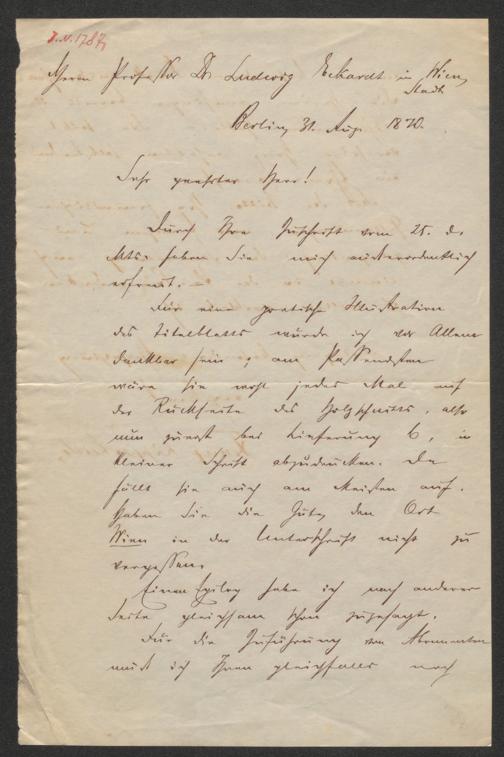 J.N. 1787
Herrn Professor Dr. Ludwig Eckardt in Wien,
Stadt
Berlin, 31. Aug. 1870.
Sehr geehrter Herr!
Durch Ihre Zuschrift vom 25. d.
Mts. haben Sie mich außerordentlich
erfreut.
Für eine poetische Illustration
des Titelblatts würde ich vor Allem
dankbar sein; am Passendsten
wäre sie wohl jedes Mal auf
der Rückseite des Holzschnitts, also
nun zuerst bei Lieferung 6, in
kleiner Schrift abzudrucken. Da
fällt sie auch am Meisten auf.
Haben Sie die Güte, den Ort
Wien in der Unterschrift nicht zu
vergessen.
Einen Epilog habe ich nach anderer
Seite gleichsam schon zugesagt.
Für die Zuführung von Abonnenten
muß ich Ihnen gleichfalls noch